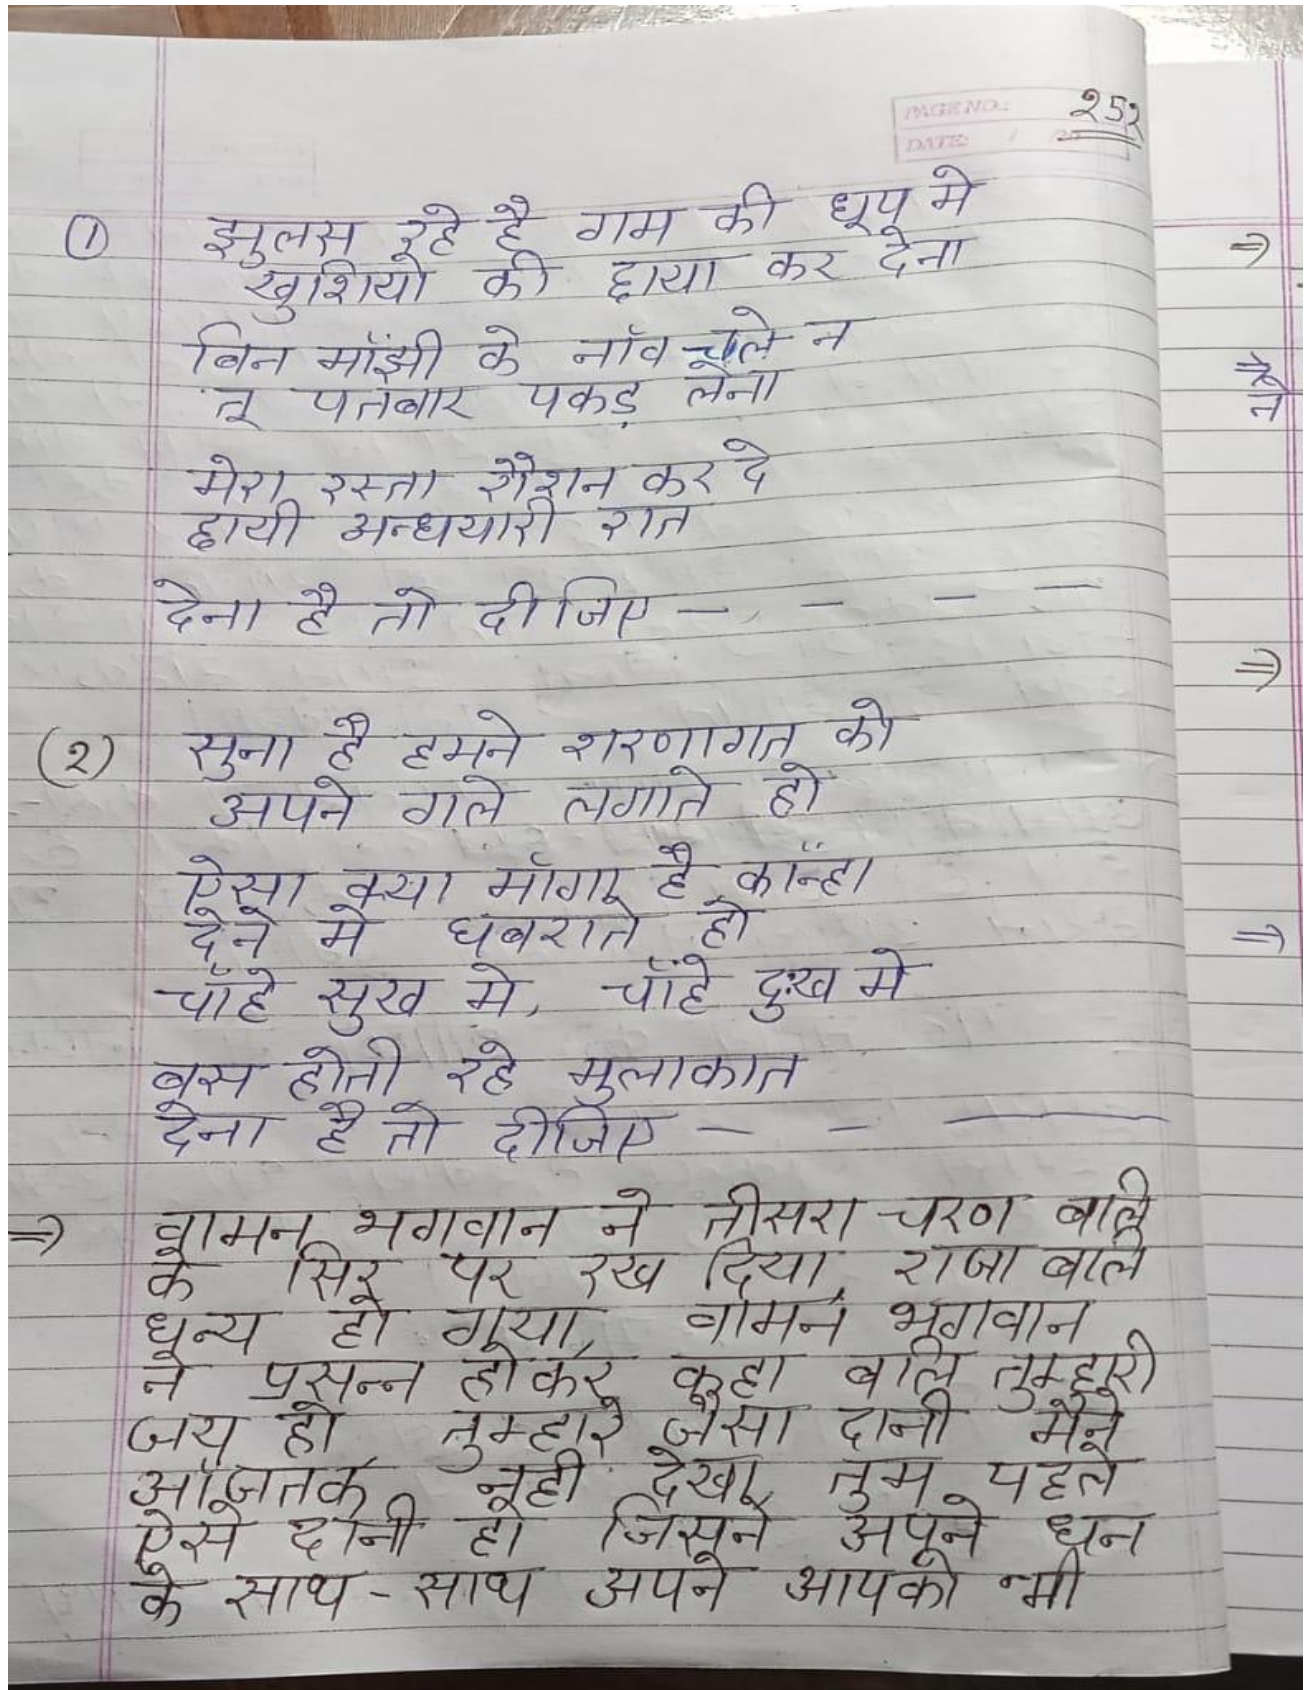 PAGE NO.: २५२
DATE: / 20
① झुलस रहे है गम की धूप मे
खुशियो की छाया कर देना
बिन मॉझी के नॉव चले न
तू पतबार पकड़ लेना
मेरा रस्ता रौशन कर दे
छायी अन्धयारी रात
देना है तो दीजिए - - - -
(2) सुना है हमने शरणागत को
अपने गले लगाते हो
ऐसा क्या मॉगा है कॉन्हा
देने मे घबराते हो
चॉहे सुख मे, चॉहे दुःख मे
बस होती रहे मुलाकात
देना है तो दीजिए - - -
⇒ वामन भगवान ने तीसरा चरण बालि
के सिर पर रख दिया, राजा बालि
धन्य हो गया, वामन भगवान
ने प्रसन्न होकर कहा बालि तुम्हारी
जय हो तुम्हारे जैसा दानी मैने
ऑजतक नही देखा, तुम पहले
ऐसे दानी हो जिसने अपने धन
के साथ - साथ अपने आपको भी
⇒
⇒
ने
⇒
⇒